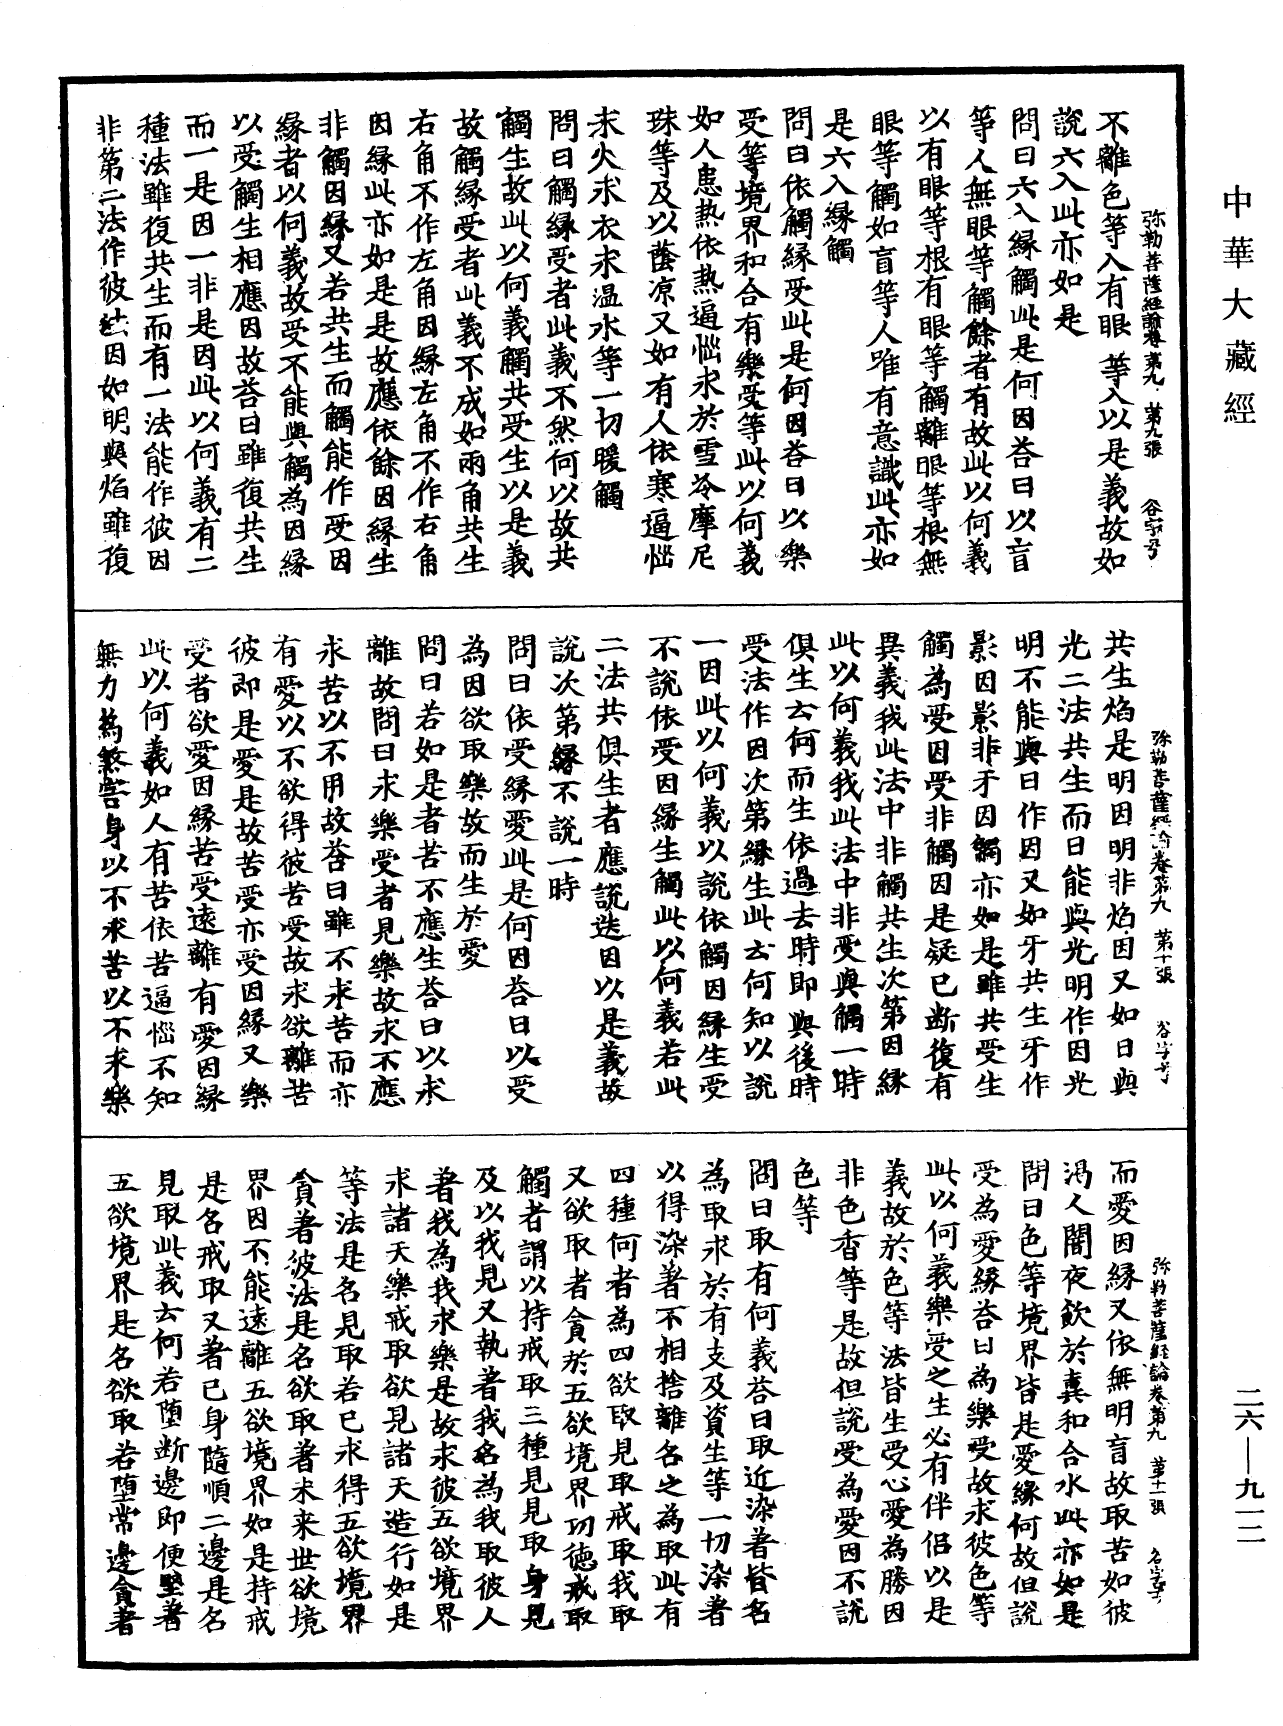 中華大藏經
弥勒菩薩經論卷第九　第九張　谷字号
不離色等入有眼等入以是義故如
說六入此亦如是
問曰六入緣觸此是何因荅曰以盲
等人無眼等觸餘者有故此以何義
以有眼等根有眼等觸離眼等根無
眼等觸如盲等人唯有意識此亦如
是六入緣觸
問曰依觸緣受此是何因荅曰以樂
受等境界和合有樂受等此以何義
如人患熱依熱逼惱求於雪冷摩尼
珠等及以蔭凉又如有人依寒逼惱
求火求衣求温水等一切暖觸
問曰觸緣受者此義不然何以故共
觸生故此以何義觸共受生以是義
故觸緣受者此義不成如兩角共生
右角不作左角因緣左角不作右角
因緣此亦如是是故應依餘因緣生
非觸因緣又若共生而觸能作受因
緣者以何義故受不能與觸為因緣
以受觸生相應因故荅曰雖復共生
而一是因一非是因此以何義有二
種法雖復共生而有一法能作彼因
非第二法作彼法因如明與焰雖復
弥勒菩薩經論卷第九　第十張　谷字号
共生焰是明因明非焰因又如日與
光二法共生而日能與光明作因光
明不能與日作因又如牙共生牙作
影因影非牙因觸亦如是雖共受生
觸為受因受非觸因是疑已斷復有
異義我此法中非觸共生次第因緣
此以何義我此法中非受與觸一時
俱生云何而生依過去時即與後時
受法作因次第緣生此云何知以說
一因此以何義以說依觸因緣生受
不說依受因緣生觸此以何義若此
二法共俱生者應說迭因以是義故
說次第緣不說一時
問曰依受緣愛此是何因荅曰以受
為因欲取樂故而生於愛
問曰若如是者苦不應生荅曰以求
離故問曰求樂受者見樂故求不應
求苦以不用故荅曰雖不求苦而亦
有愛以不欲得彼苦受故求欲離苦
彼即是愛是故苦受亦受因緣又樂
受者欲愛因緣苦受遠離有愛因緣
此以何義如人有苦依苦逼惱不知
無力為煞害身以不求苦以不求樂
弥勒菩薩經論卷第九　第十一張　谷字号
而愛因緣又依無明盲故取苦如彼
渴人闇夜飲於糞和合水此亦如是
問曰色等境界皆是愛緣何故但說
受為愛緣荅曰為樂受故求彼色等
此以何義樂受之生必有伴侶以是
義故於色等法皆生受心愛為勝因
非色香等是故但說受為愛因不說
色等
問曰取有何義荅曰取近染著皆名
為取求於有支及資生等一切染著
以得染著不相捨離名之為取此有
四種何者為四欲取見取戒取我取
又欲取者貪於五欲境界功德戒取
觸者謂以持戒取三種見見取身見
及以我見又執著我名為我取彼人
著我為我求樂是故求彼五欲境界
求諸天樂戒取欲見諸天造行如是
等法是名見取若已求得五欲境界
貪著彼法是名欲取著未来世欲境
界因不能遠離五欲境界如是持戒
是名戒取又著已身隨順二邊是名
見取此義云何若堕斷邊即便堅著
五欲境界是名欲取若堕常邊貪著
二六—九一二